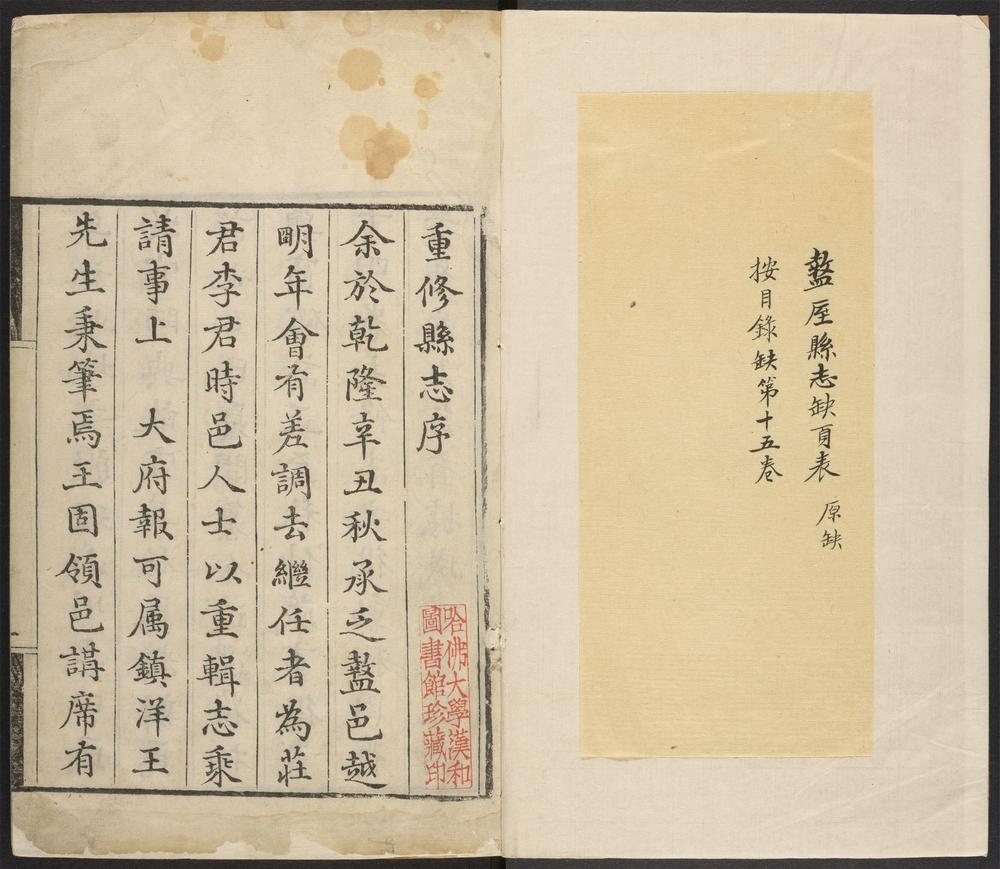 盩厔縣志缺頁表 原缺
按目錄缺第十五卷
重修縣志序
余於乾隆辛丑秋承乏盩邑越
明年會有差調去繼任者為莊
君李君時邑人士以重輯志乘
請事上 大府報可属鎮洋王
先生秉筆焉王固領邑講席有
哈佛大學漢和
圖書館珍藏印